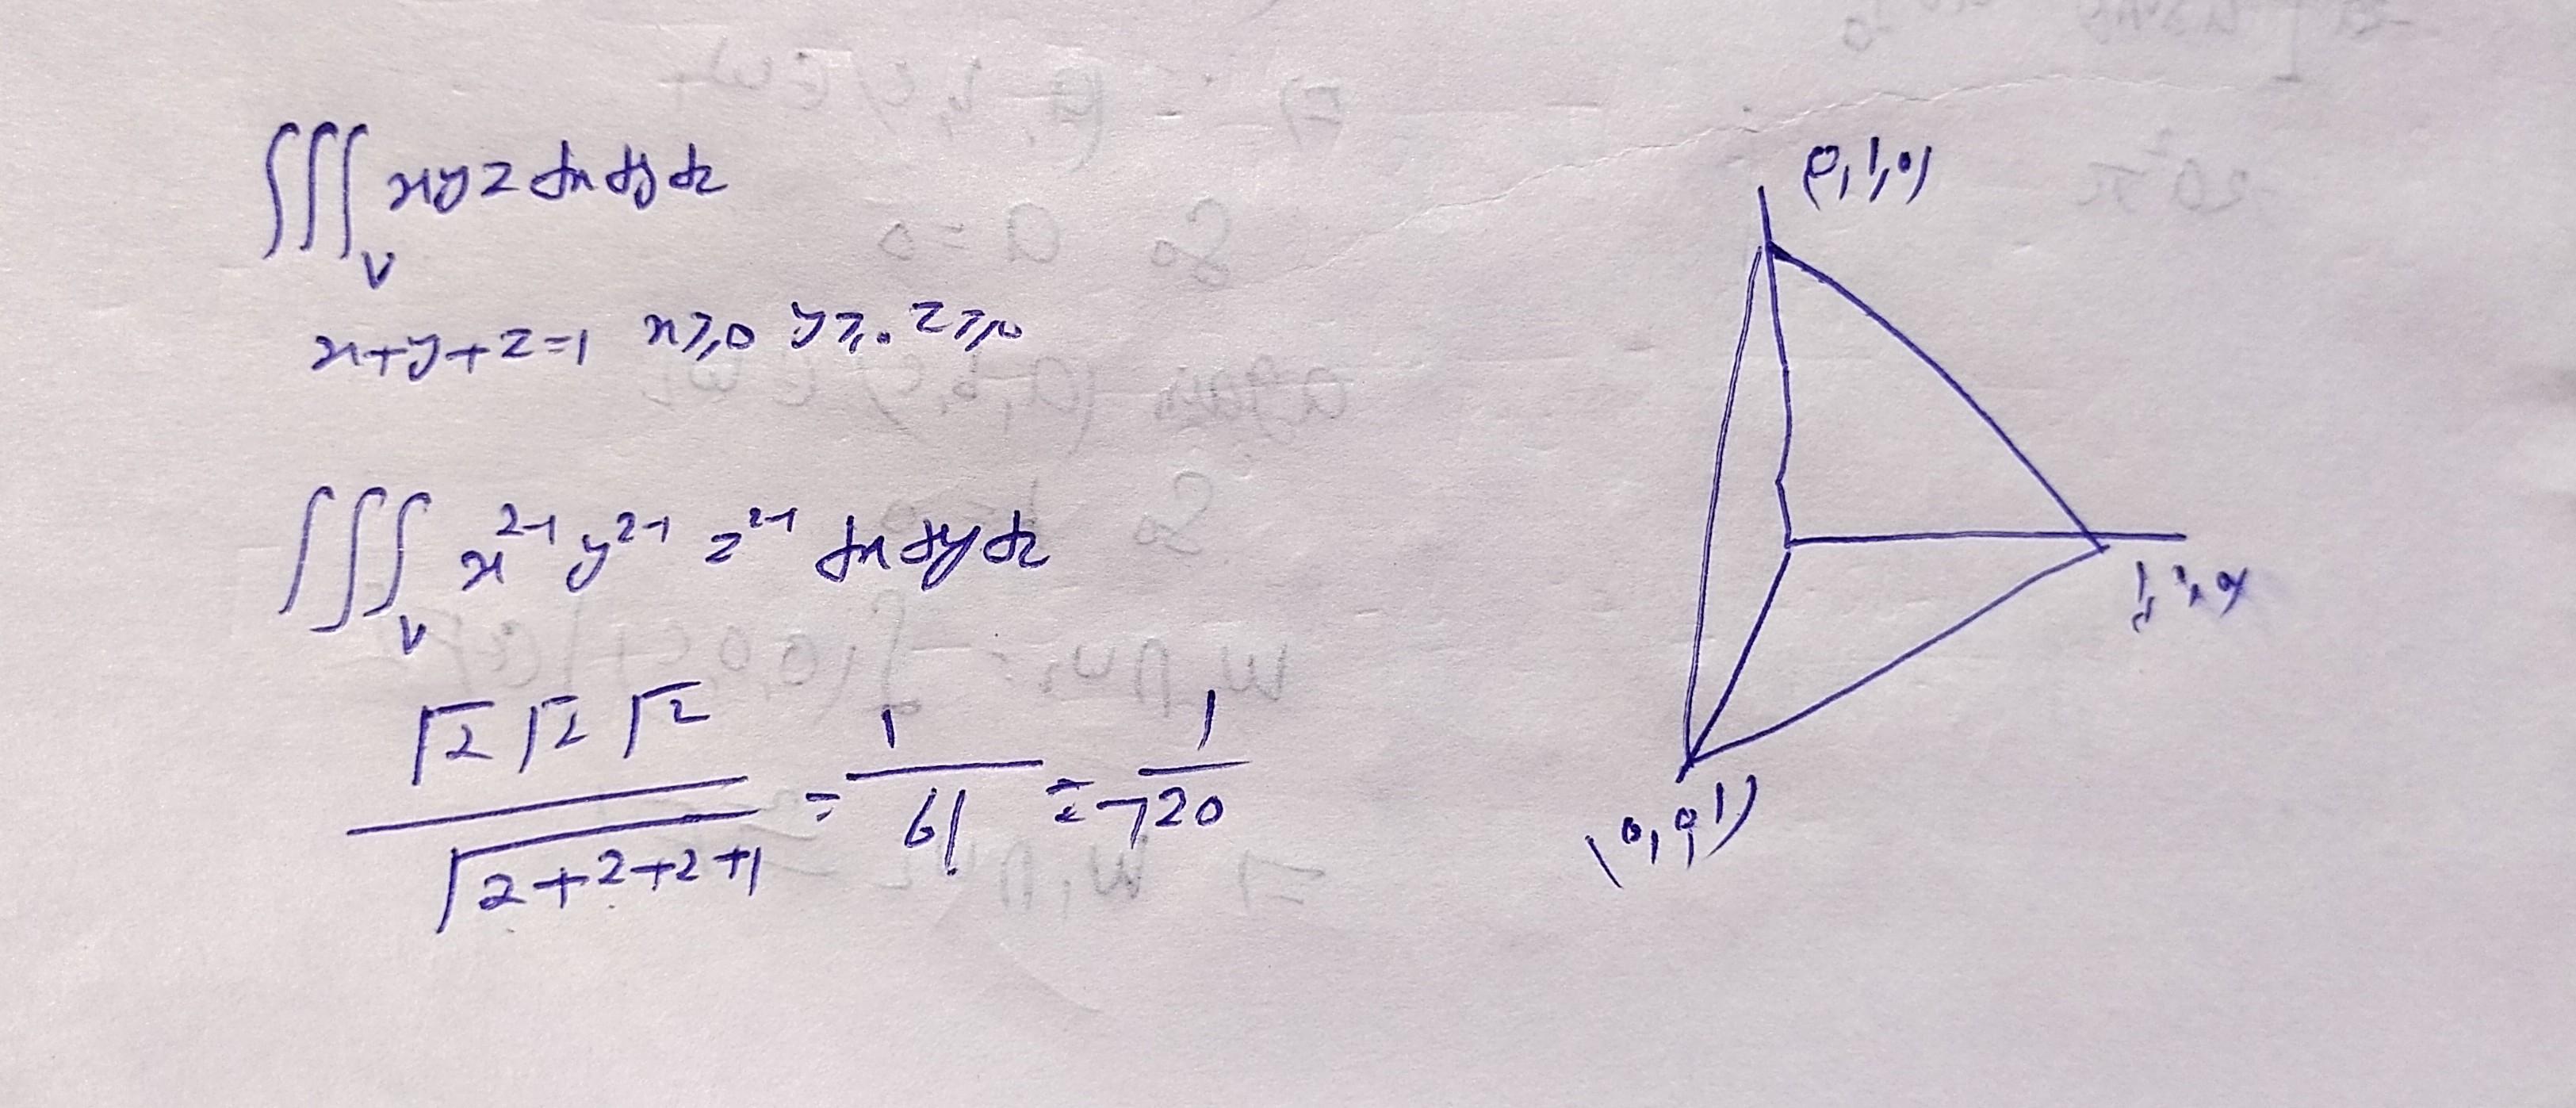 ∫∫∫_V xyz dx dy dz
x+y+z=1 x≥0 y≥0 z≥0
∫∫∫_V x^{2-1} y^{2-1} z^{2-1} dx dy dz
Γ2 Γ2 Γ2 / Γ2+2+2+1 = 1/6! = 1/720
(0,1,0)
(0,0,1)